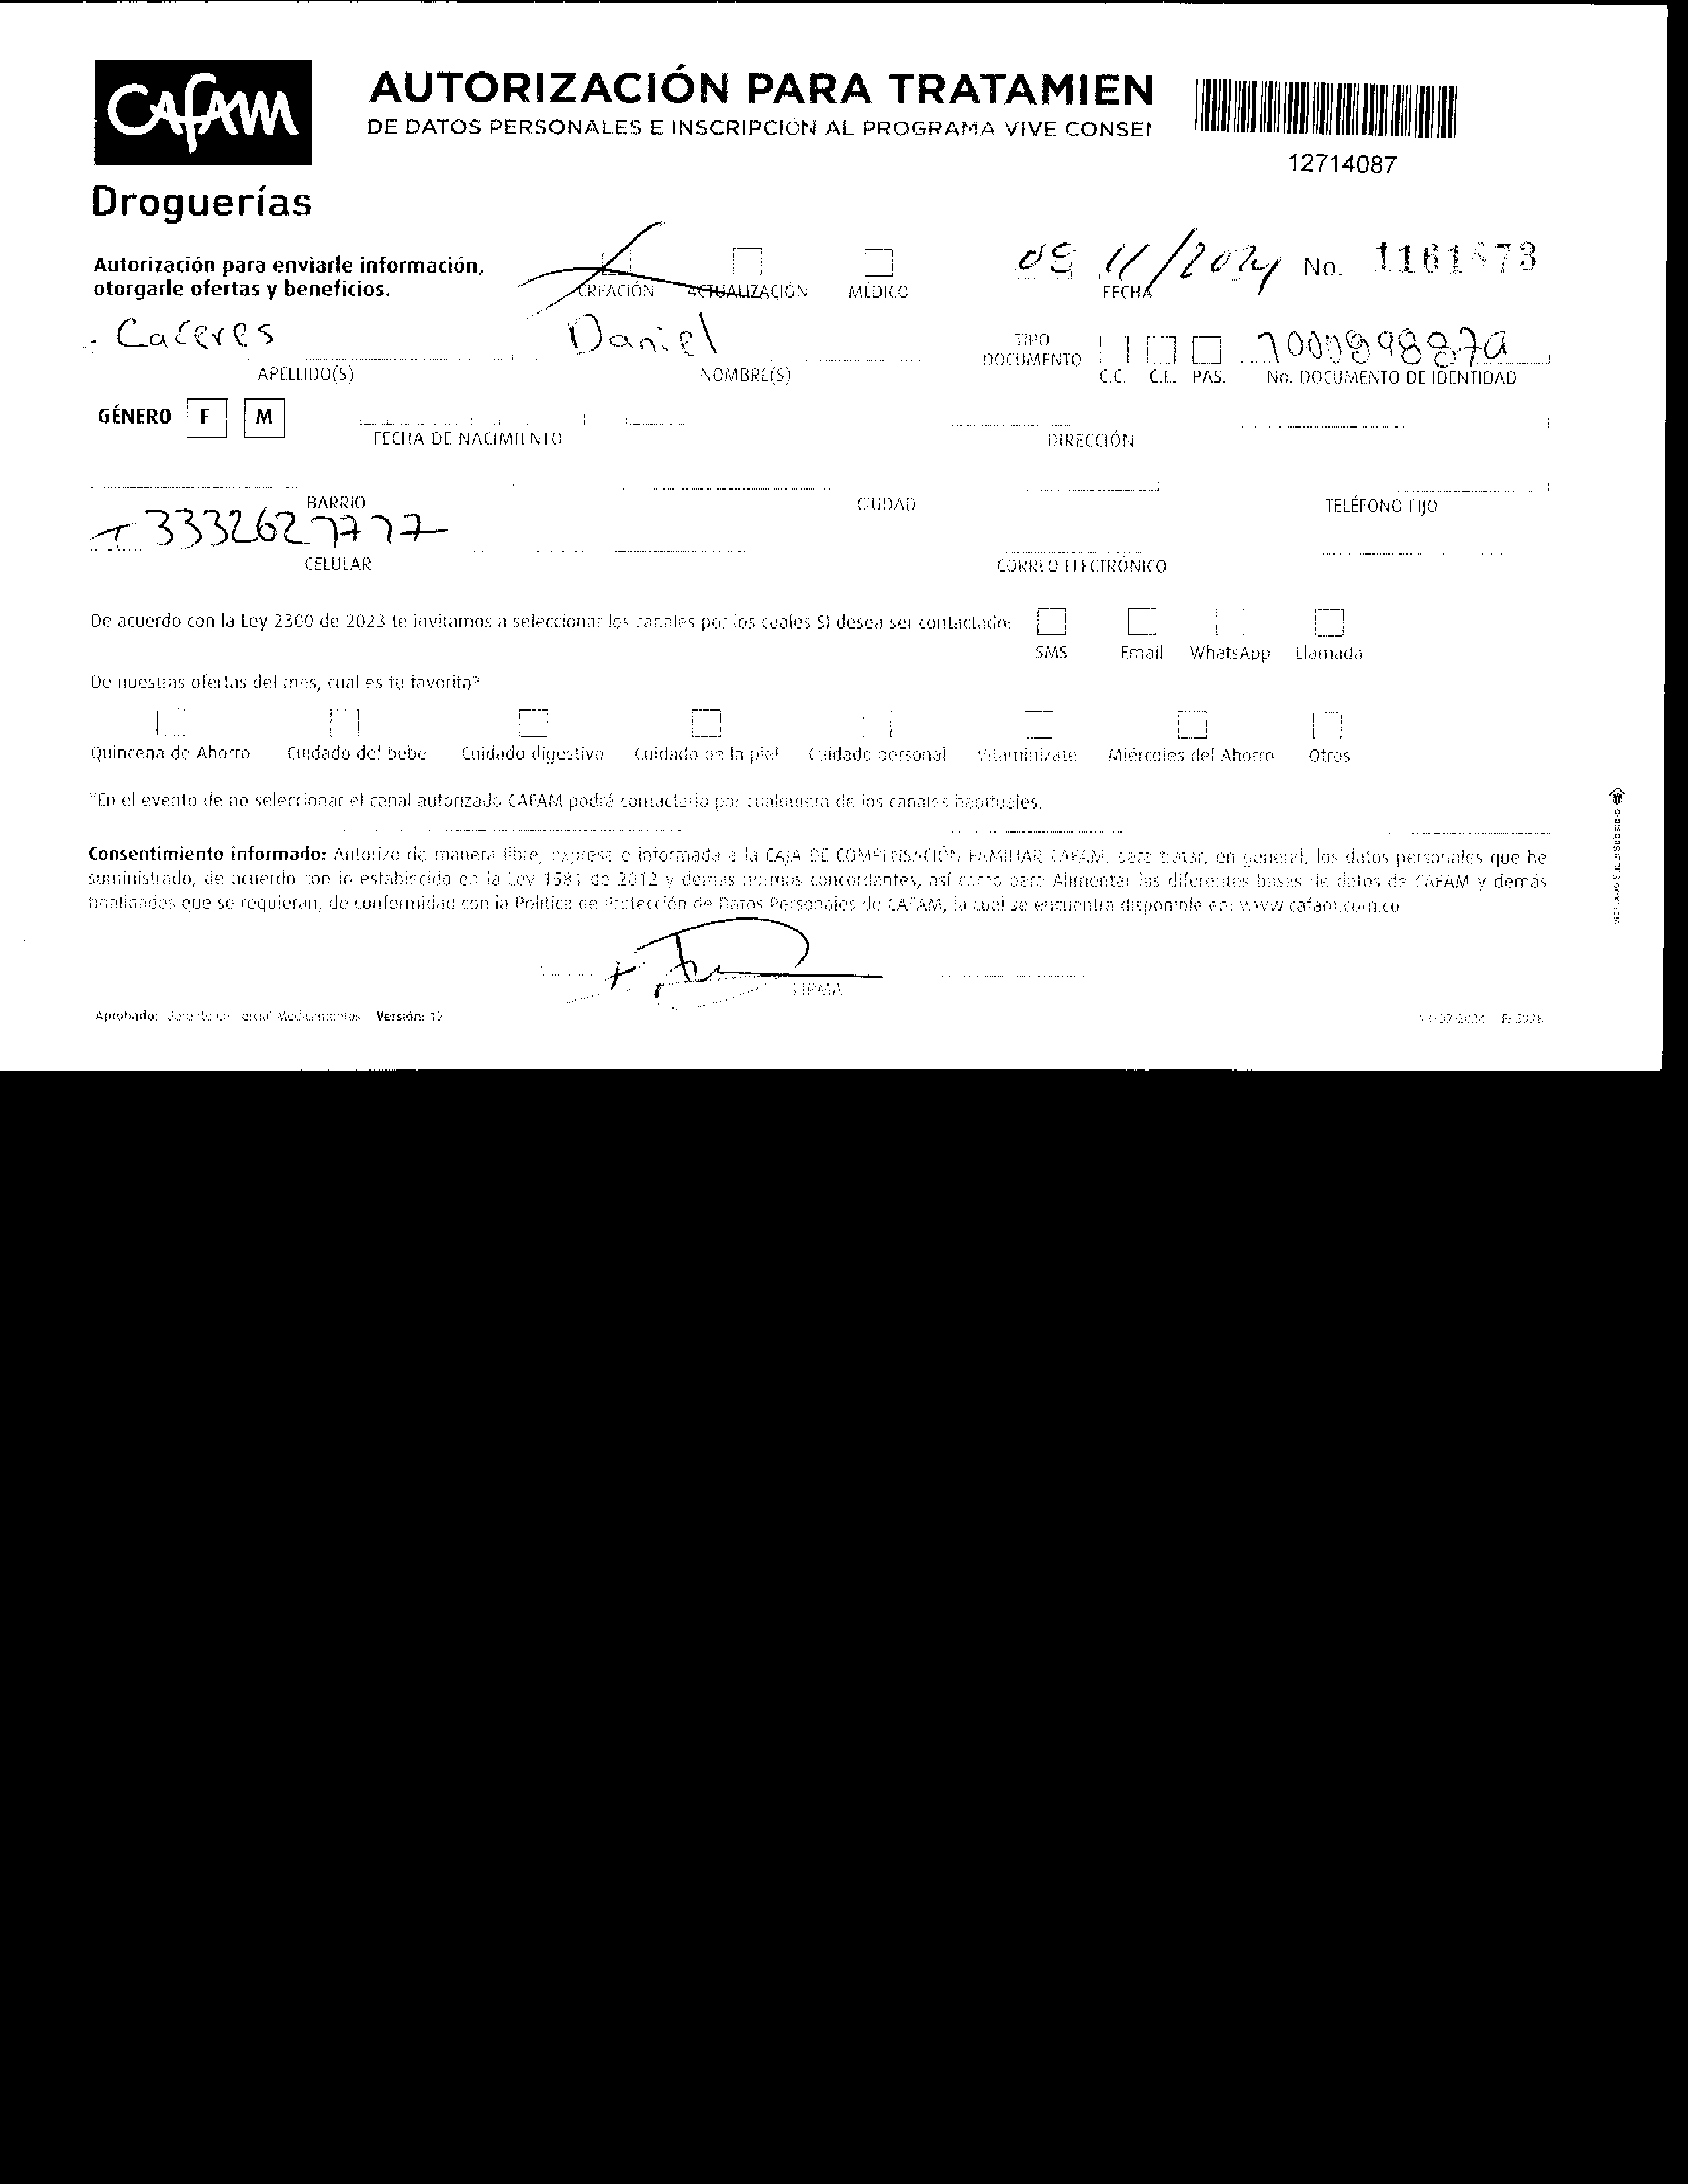 CAFAM
Droguerías
AUTORIZACIÓN PARA TRATAMIEN
DE DATOS PERSONALES E INSCRIPCIÓN AL PROGRAMA VIVE CONSEN
12714087
Autorización para enviarle información,
otorgarle ofertas y beneficios.
CREACIÓN ACTUALIZACIÓN MÉDICO
11/2024 No.
FECHA
Caceres Daniel
TIPO
DOCUMENTO
APELLIDO(S) NOMBRE(S) C.C. C.E. PAS. No. DOCUMENTO DE IDENTIDAD
GÉNERO F M
FECHA DE NACIMIENTO DIRECCIÓN
BARRIO CIUDAD TELÉFONO FIJO
3332627777
CELULAR CORREO ELECTRÓNICO
De acuerdo con la Ley 2300 de 2023 te invitamos a seleccionar los canales por los cuales SI desea ser contactado:
SMS Email WhatsApp Llamada
De nuestras ofertas del mes, cual es tu favorita?
Quincena de Ahorro Cuidado del bebe Cuidado digestivo Cuidado de la piel Cuidado personal Vitaminízate Miércoles del Ahorro Otros
"En el evento de no seleccionar el canal autorizado CAFAM podrá contactarlo por cualquiera de los canales habituales.
Consentimiento informado: Autorizo de manera libre, expresa e informada a la CAJA DE COMPENSACIÓN FAMILIAR CAFAM, para tratar, en general, los datos personales que he
suministrado, de acuerdo con lo establecido en la Ley 1581 de 2012 y demás normas concordantes, así como para Alimentar las diferentes bases de datos de CAFAM y demás
finalidades que se requieran, de conformidad con la Política de Protección de Datos Personales de CAFAM, la cual se encuentra disponible en: www.cafam.com.co
FIRMA
Aprobado: Gerente Comercial Medicamentos Versión: 12